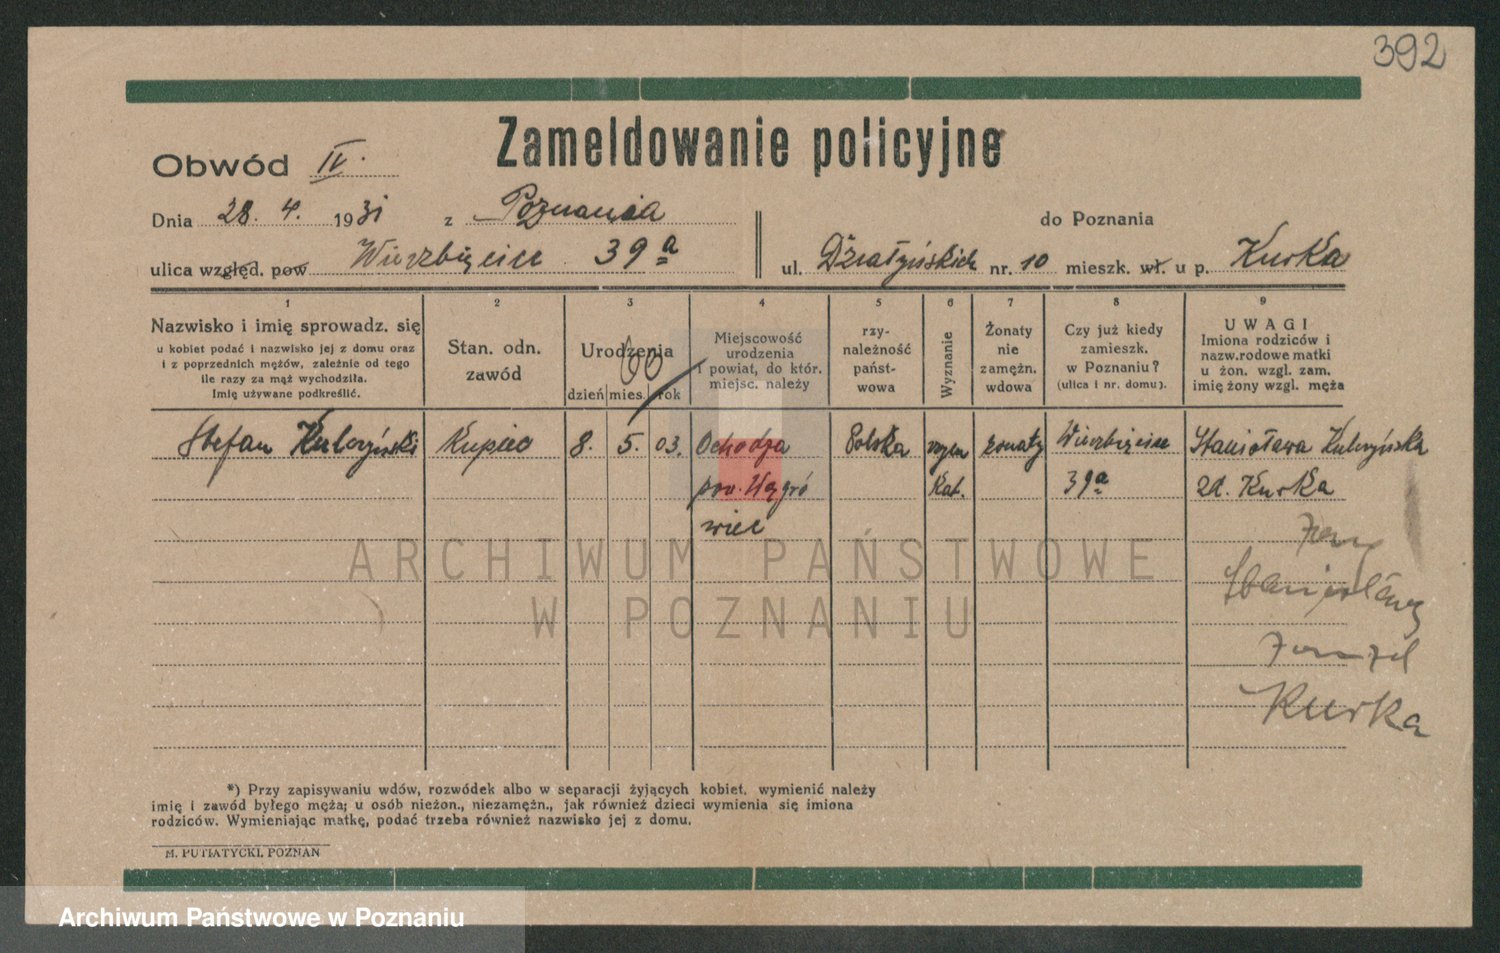 392
Zameldowanie policyjne
Obwód IV.
Dnia 28. 4. 1931 z Poznania do Poznania
ulica względ. pow Wierzbięcice 39a ul. Działyńskich nr. 10 mieszk. wł. u p. Kurka
1 2 3 4 5 6 7 8 9
Nazwisko i imię sprowadz. się
u kobiet podać i nazwisko jej z domu oraz
i z poprzednich mężów, zależnie od tego
ile razy za mąż wychodziła.
Imię używane podkreślić.
Stan. odn.
zawód
Urodzenia
dzień mies. rok
Miejscowość
urodzenia
i powiat, do któr.
miejsc. należy
rzy-
należność
państ-
wowa
Wyznanie
Żonaty
nie
zamężn.
wdowa
Czy już kiedy
zamieszk.
w Poznaniu?
(ulica i nr. domu).
UWAGI
Imiona rodziców i
nazw.rodowe matki
u żon. wzgl. zam.
imię żony wzgl. męża
Stefan Kulczyński Kupiec 8. 5. 03. Ochodza Polska rzym żonaty Wierzbięcice Stanisława Kulczyńska
pow. Wągro kat. 39a zd. Kurka
wiec
Stanisława
Kurka
ARCHIWUM PAŃSTWOWE
W POZNANIU
*) Przy zapisywaniu wdów, rozwódek albo w separacji żyjących kobiet, wymienić należy
imię i zawód byłego męża; u osób nieżon., niezamężn., jak również dzieci wymienia się imiona
rodziców. Wymieniając matkę, podać trzeba również nazwisko jej z domu.
M. PUTIATYCKI, POZNAŃ
Archiwum Państwowe w Poznaniu